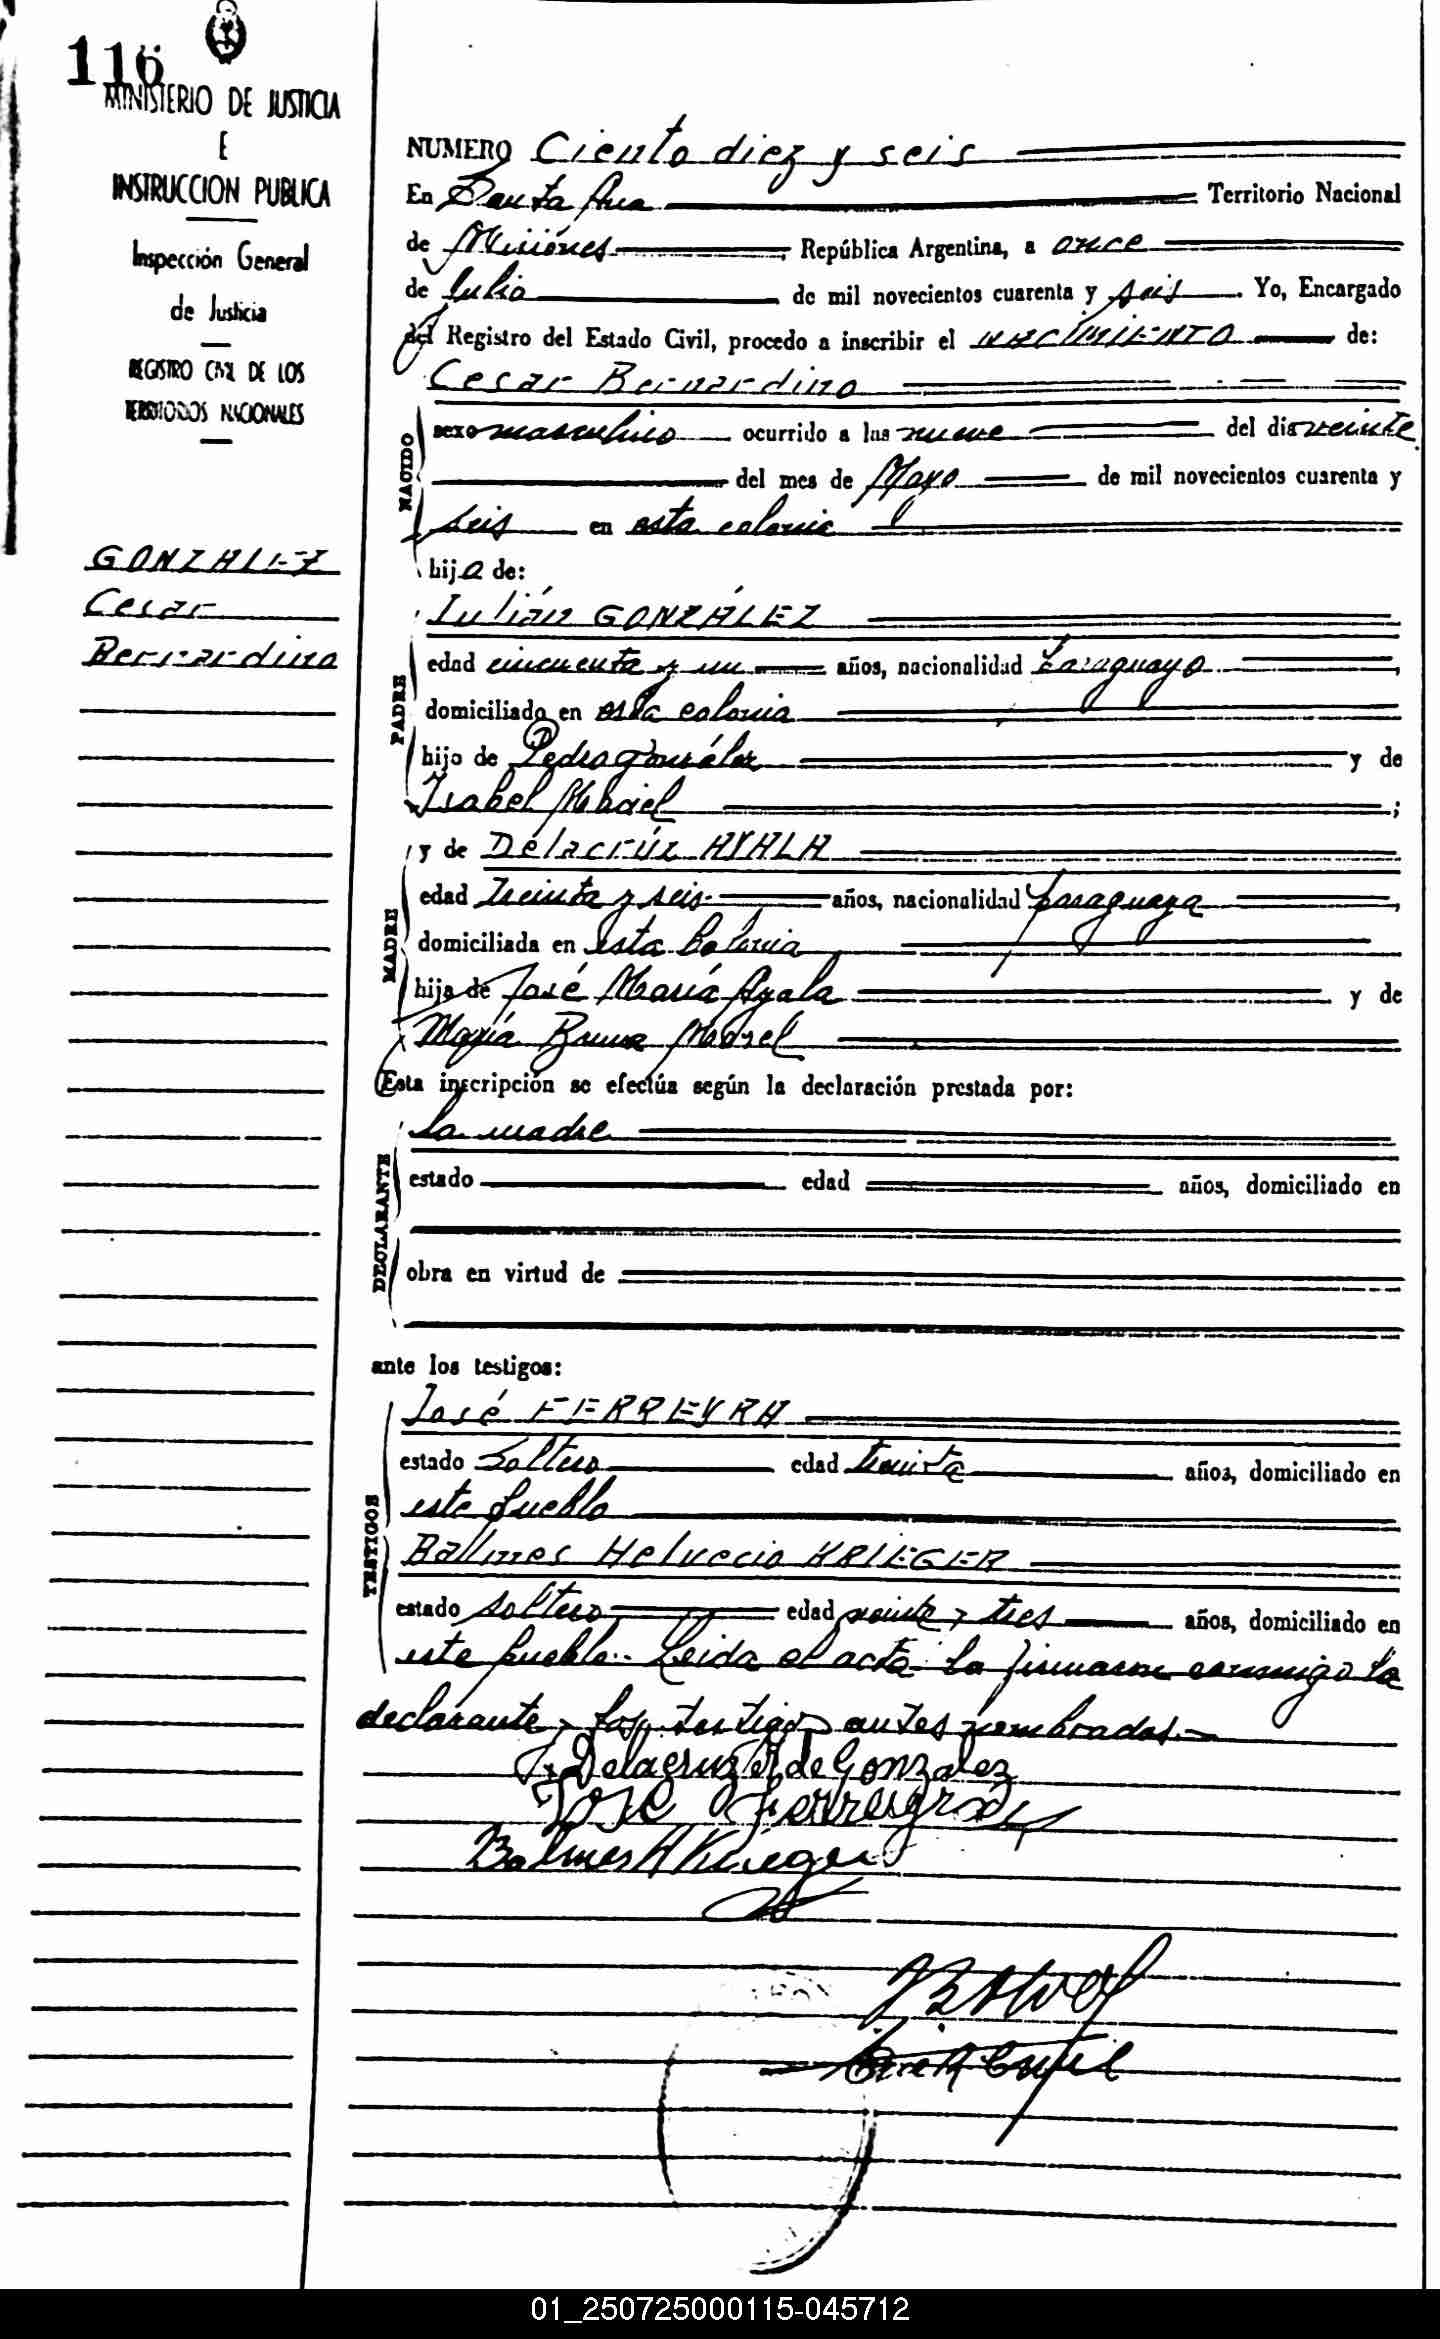 116
MINISTERIO DE JUSTICIA
E
INSTRUCCION PUBLICA
Inspección General
de Justicia
REGISTRO CIVIL DE LOS
TERRITORIOS NACIONALES
GONZALEZ
Cesar
Bernardino
NUMERO Ciento diez y seis
En Santa Ana Territorio Nacional
de Misiones, República Argentina, a once
de Julio de mil novecientos cuarenta y seis. Yo, Encargado
del Registro del Estado Civil, procedo a inscribir el NACIMIENTO de:
Cesar Bernardino
NACIDO
sexo masculino ocurrido a las nueve del dia veinte
del mes de Mayo de mil novecientos cuarenta y
seis en esta colonia
hijo de:
PADRE
Julián GONZÁLEZ
edad cincuenta y un años, nacionalidad Paraguayo,
domiciliado en esta colonia
hijo de Pedro González y de
Isabel Maciel;
MADRE
y de Delacrúz AYALA
edad treinta y seis años, nacionalidad paraguaya,
domiciliada en esta Colonia
hija de José María Ayala y de
María Bruna
Esta inscripción se efectúa según la declaración prestada por:
DECLARANTE
la madre
estado edad años, domiciliado en
obra en virtud de
ante los testigos:
TESTIGOS
José FERREYRA
estado Soltero edad treinta años, domiciliado en
este pueblo
Balmes Helvecio KRIEGER
estado soltero edad veinte y tres años, domiciliado en
este pueblo.- Leida el acta la firmaron conmigo la
declarante y los testigos antes nombrados.-
Delacruz de Gonzalez
José Ferreyra
Balmes H Krieger
01_250725000115-045712